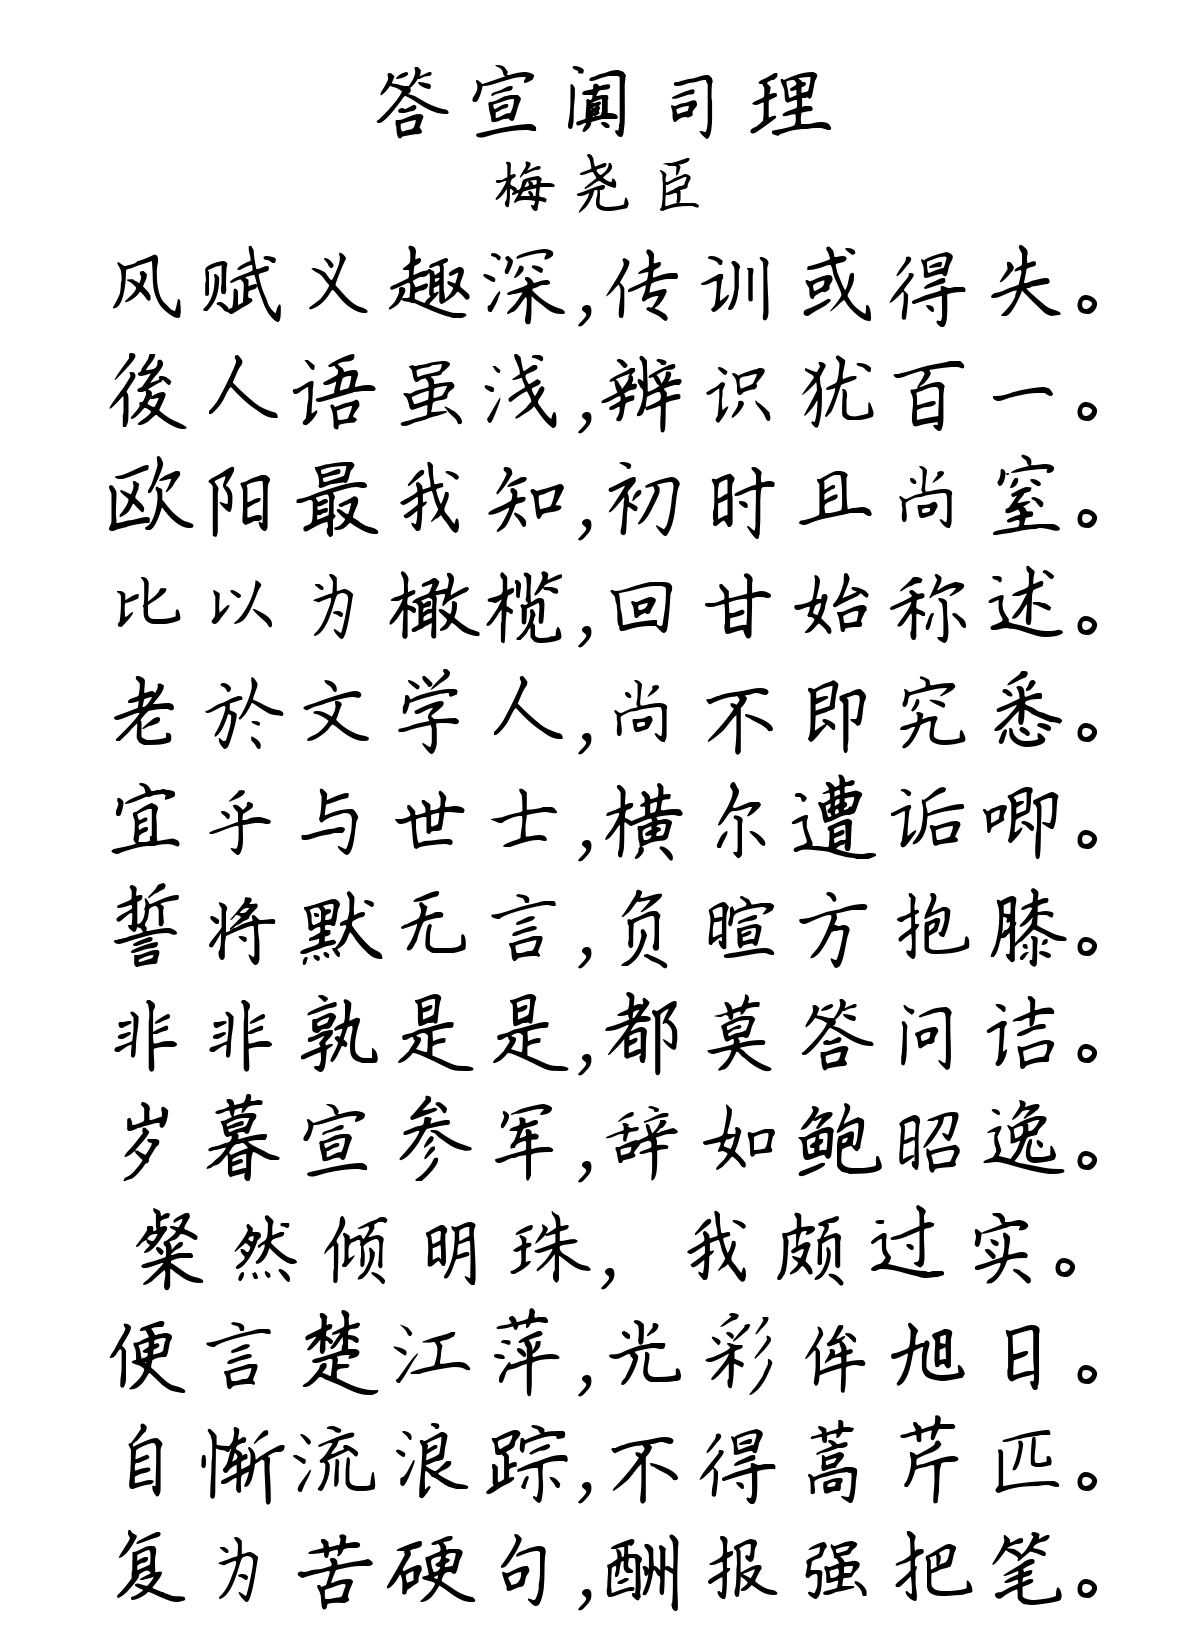 答宣阗司理
梅尧臣
风赋义趣深,传训或得失。
後人语虽浅,辨识犹百一。
欧阳最我知,初时且尚窒。
比以为橄榄,回甘始称述。
老於文学人,尚不即究悉。
宜乎与世士,横尔遭诟唧。
誓将默无言,负暄方抱膝。
非非孰是是,都莫答问诘。
岁暮宣参军,辞如鲍昭逸。
粲然倾明珠,我颇过实。
便言楚江萍,光彩侔旭日。
自惭流浪踪,不得蒿芹匹。
复为苦硬句,酬报强把笔。